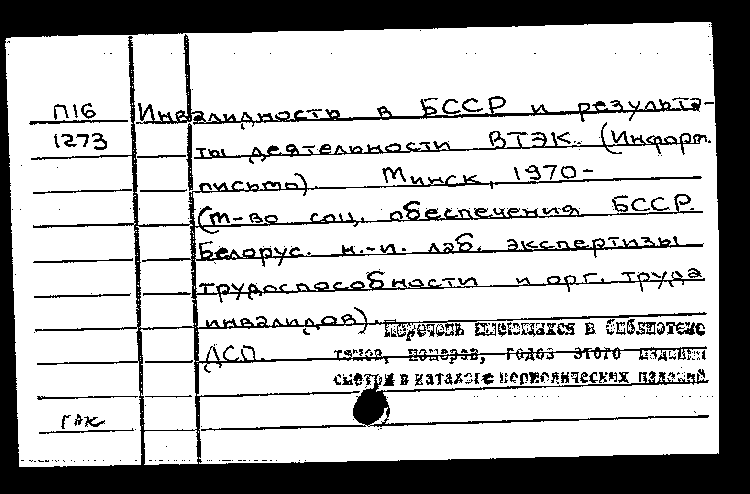 П16 Инвалидность в БССР и результа-
1273 ты деятельности ВТЭК. (Информ.
письмо). Минск, 1970-
(М-во соц. обеспечения БССР.
Белорус. н.-и. лаб. экспертизы
трудоспособности и орг. труда
инвалидов).
Перечень имеющихся в библиотеке
ДСП. томов, номеров, годов этого издания
смотри в каталоге периодических изданий
ГАК